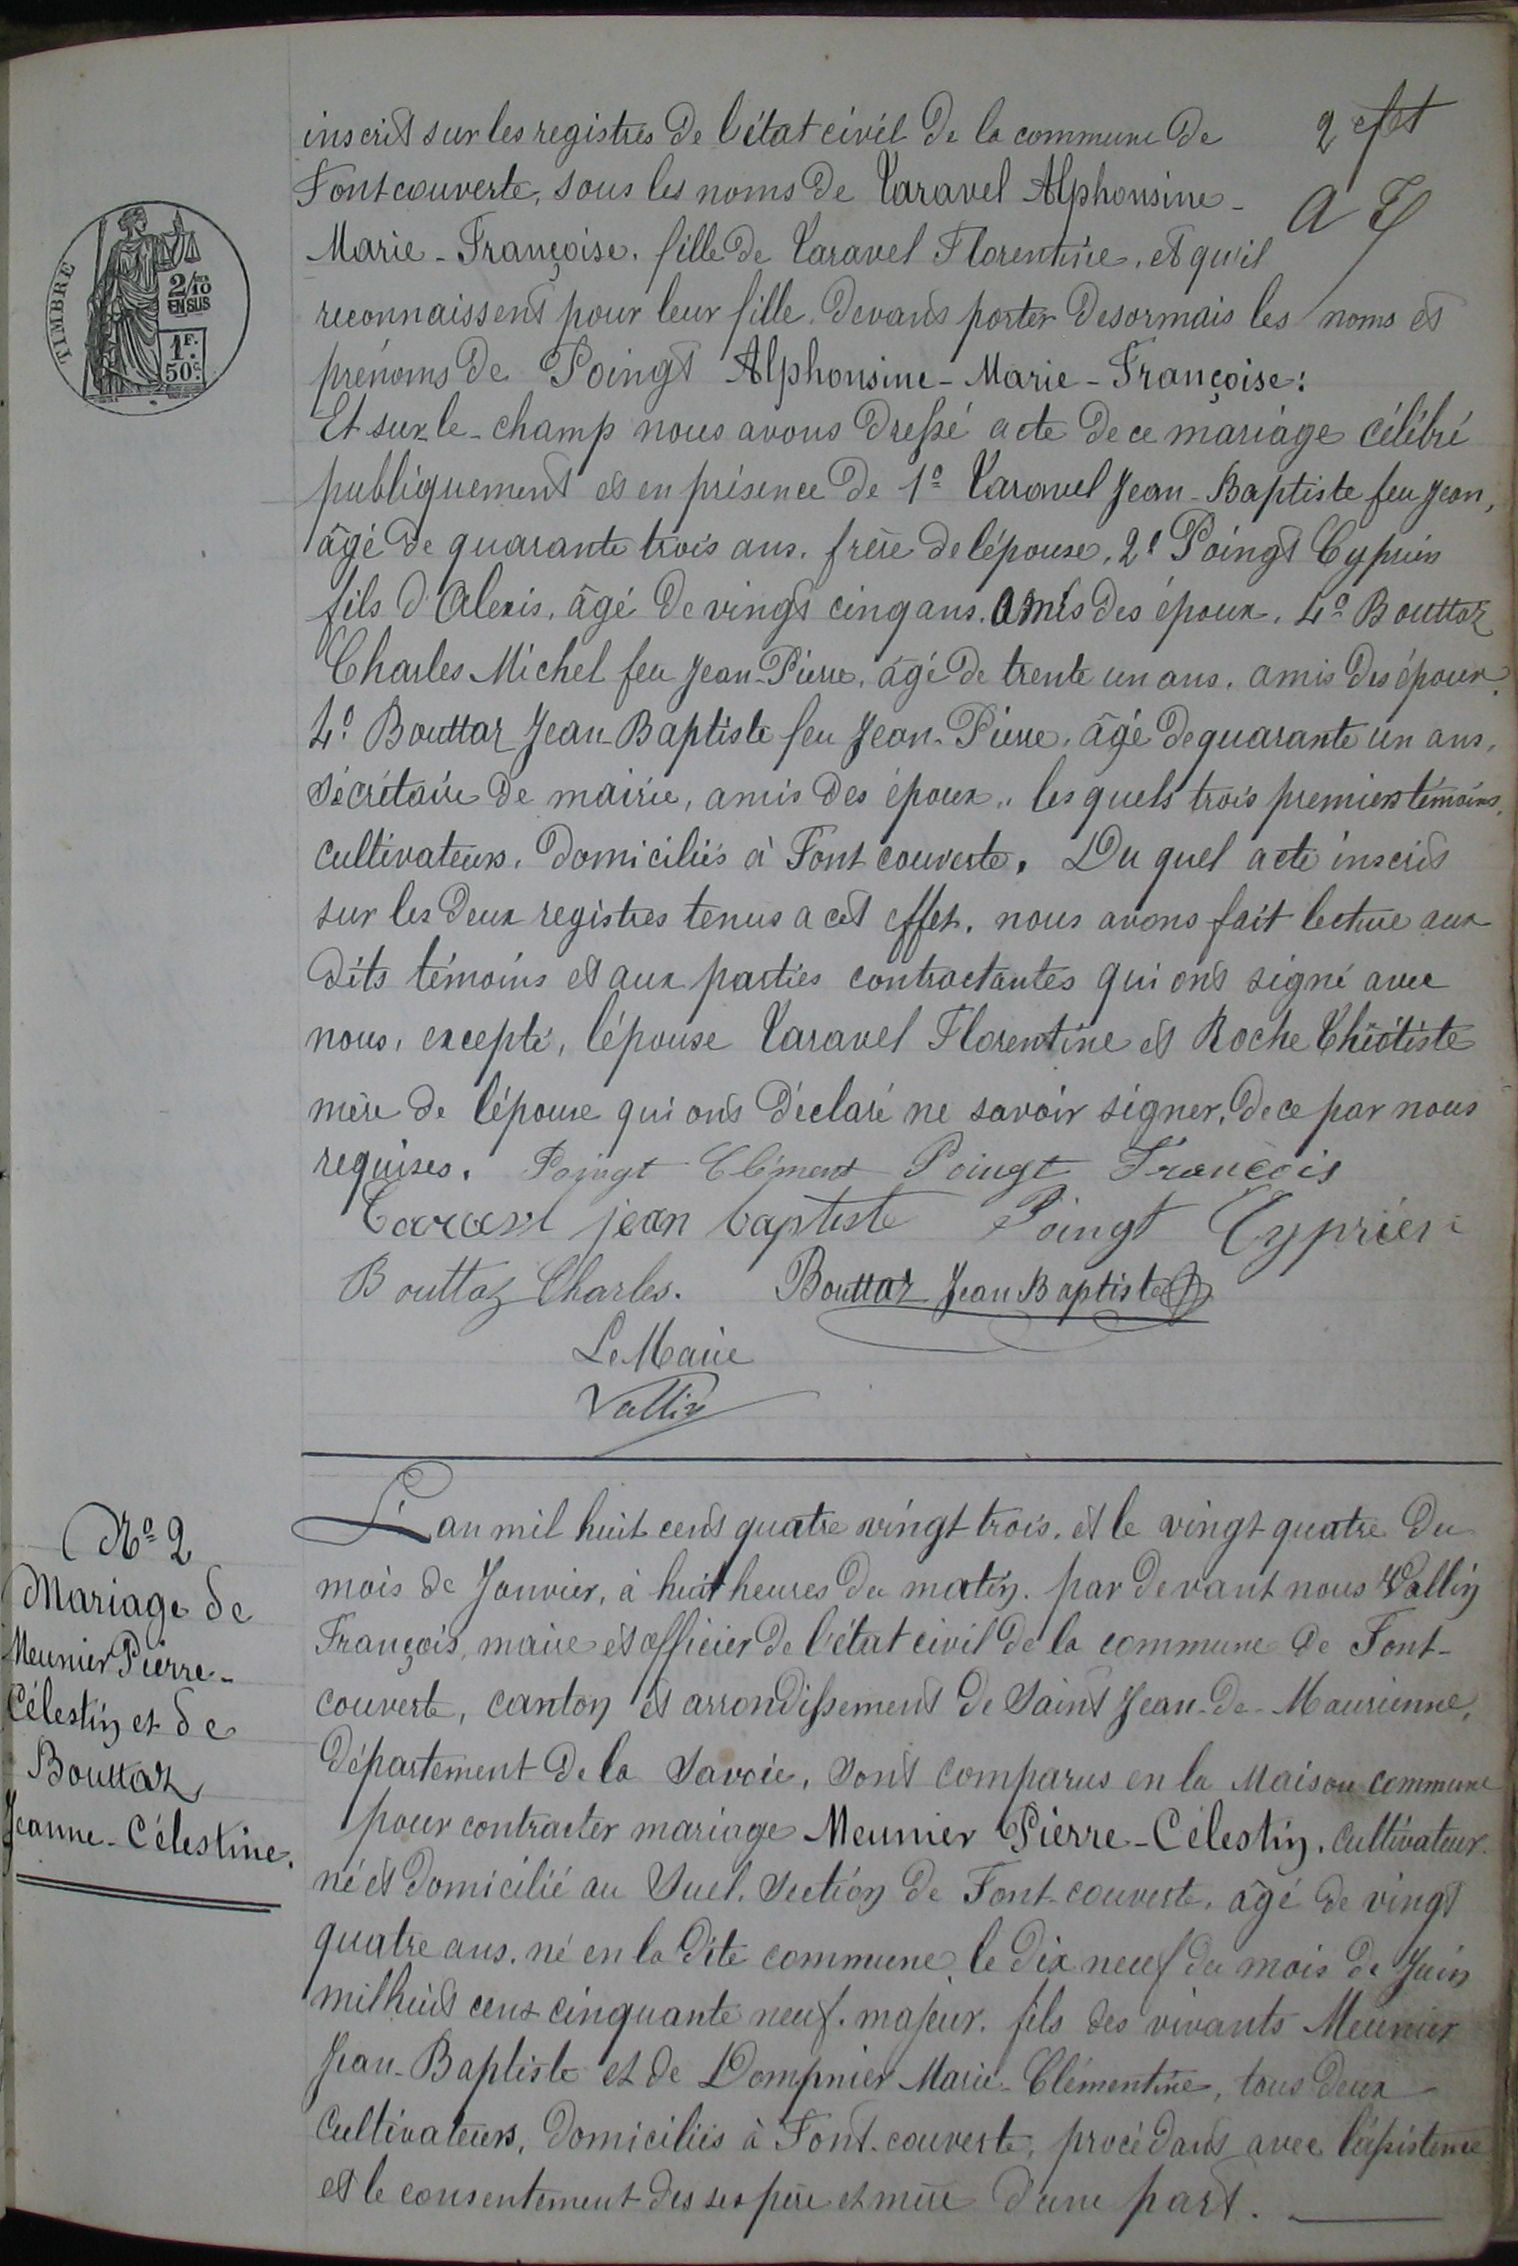 inscrit sur les registres de l'état civil de la commune de
2 eft
Fontcouverte, sous les noms de Taravel Alphonsine-
Marie-Françoise, fille de Taravel Florentine, et qu'il
reconnaissent pour leur fille, devant porter desormais les noms et
prénoms de Poingt Alphonsine-Marie-Françoise:
Et sur le-champ nous avons dressé acte de ce mariage célébré
publiquement et en présence de 1º Taravel Jean-Baptiste feu Jean,
âgé de quarante trois ans, frère de l'épouse, 2º Poingt Cyprien
fils d'Alexis, âgé de vingt cinq ans, amis des époux, 4º Bouttaz
Charles Michel feu Jean-Pierre, âgé de trente un ans, amis des époux,
4º Bouttaz Jean-Baptiste feu Jean-Pierre, âgé de quarante un ans,
sécrétaire de mairie, amis des époux,, les quels trois premiers témoins,
cultivateurs, domiciliés à Fontcouverte. Du quel acte inscrit
sur les deux registres tenus a cet effet, nous avons fait lecture aux
dits témoins et aux parties contractantes qui ont signé avec
nous, excepté, l'épouse Taravel Florentine et Roche Théotiste
mère de l'épouse qui ont déclaré ne savoir signer, de ce par nous
requises. Poingt Clément Poingt François
Taravel jean baptiste Poingt Cyprien
Bouttaz Charles. Bouttaz Jean Baptiste
Le Maire
Vallin
TIMBRE
2/10 EN SUS
1F.
50c.
Nº 2
Mariage de
Meunier Pierre-
Célestin et de
Bouttaz
Jeanne-Célestine.
L'an mil huit cent quatre vingt trois, et le vingt quatre du
mois de Janvier, à huit heures du matin, par devant nous Vallin
François, maire et officier de l'état civil de la commune de Font-
couverte, canton et arrondissement de Saint Jean-de-Maurienne,
département de la Savoie, sont comparus en la Maison commune
pour contracter mariage Meunier Pierre-Célestin, cultivateur
né et domicilié au Suel, section de Font-couverte, âgé de vingt
quatre ans, né en la dite commune, le dix neuf du mois de Juin
mil huit cent cinquante neuf, majeur, fils des vivants Meunier
Jean-Baptiste et de Dompnier Marie-Clémentine, tous deux
cultivateurs, domiciliés à Font-couverte, procédant avec l'assistence
et le consentement des ses père et mère d'une part.